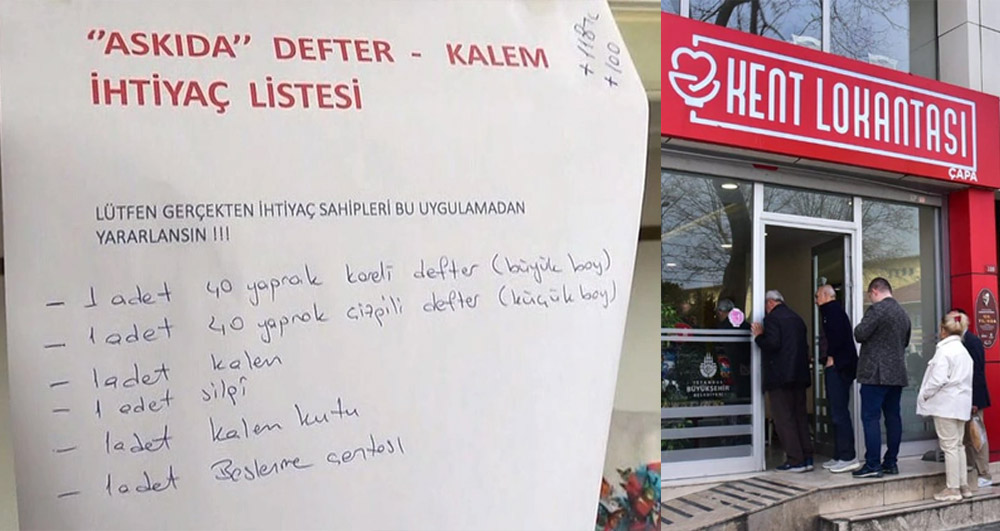 "ASKIDA" DEFTER - KALEM
İHTİYAÇ LİSTESİ
+118TL
+100
LÜTFEN GERÇEKTEN İHTİYAÇ SAHİPLERİ BU UYGULAMADAN
YARARLANSIN !!!
- 1 adet 40 yaprak kareli defter (büyük boy)
- 1 adet 40 yaprak çizgili defter (küçük boy)
- 1 adet kalem
- 1 adet silgi
- 1 adet kalem kutu
- 1 adet Beslenme çantası
KENT LOKANTASI
ÇAPA
İSTANBUL
BÜYÜKŞEHİR
BELEDİYESİ